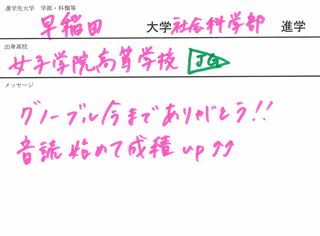 進学先大学 学部・科類等
早稲田 大学 社会科学部 進学
出身高校
女子学院高等学校 JG
メッセージ
グノーブル今までありがとう!!
音読始めて成績up↑↑